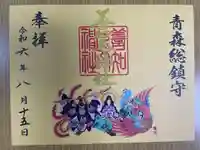 青森総鎮守
善知鳥神社
奉拝
令和六年八月十五日